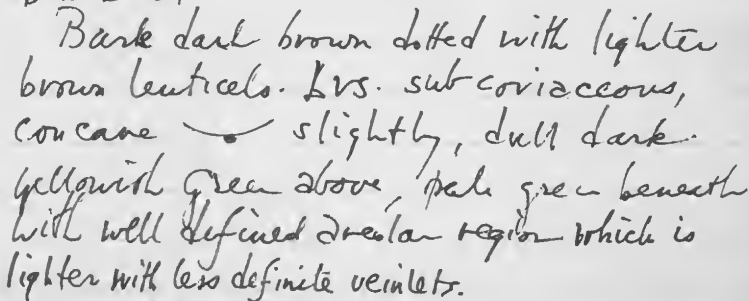 Bark dark brown dotted with lighter
brown lenticels. Lvs. subcoriaceous,
concave slightly, dull dark
yellowish green above, pale green beneath
with well defined areolar region which is
lighter with less definite veinlets.